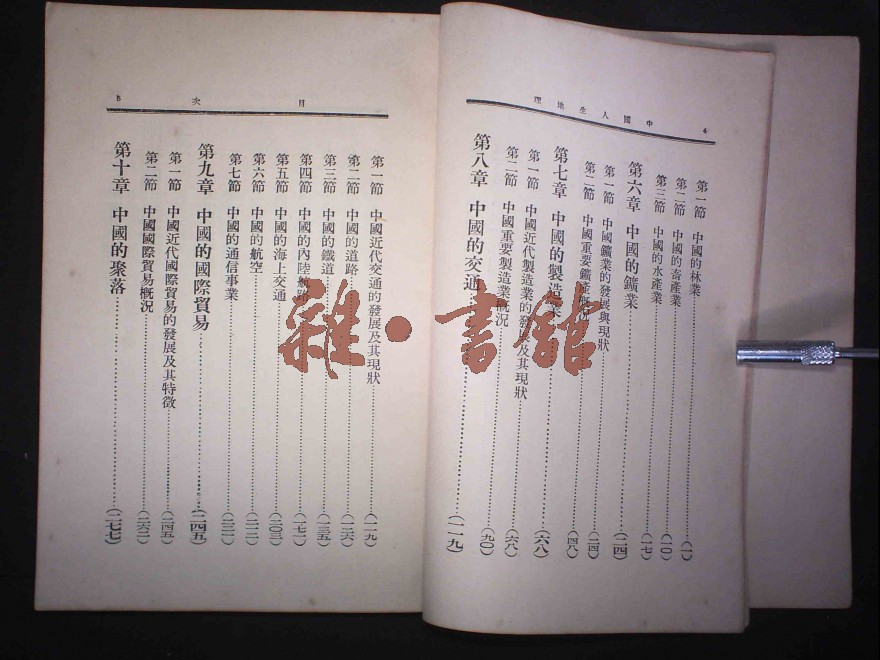 中國人生地理 4
第一節 中國的林業……(一)
第二節 中國的畜產業……(一〇)
第三節 中國的水產業……(一七)
第六章 中國的鑛業……(二四)
第一節 中國鑛業的發展與現狀……(二四)
第二節 中國重要鑛產概況……(四八)
第七章 中國的製造業……(六八)
第一節 中國近代製造業的發展及其現狀……(六八)
第二節 中國重要製造業概況……(九〇)
第八章 中國的交通……(一一九)
目次 5
第一節 中國近代交通的發展及其現狀……(一一九)
第二節 中國的道路……(一二六)
第三節 中國的鐵道……(一三五)
第四節 中國的內陸航路……(一七一)
第五節 中國的海上交通……(二〇三)
第六節 中國的航空……(二二二)
第七節 中國的通信事業……(二三一)
第九章 中國的國際貿易……(二四五)
第一節 中國近代國際貿易的發展及其特徵……(二四五)
第二節 中國國際貿易概況……(二六二)
第十章 中國的聚落……(二七七)
雜·書館